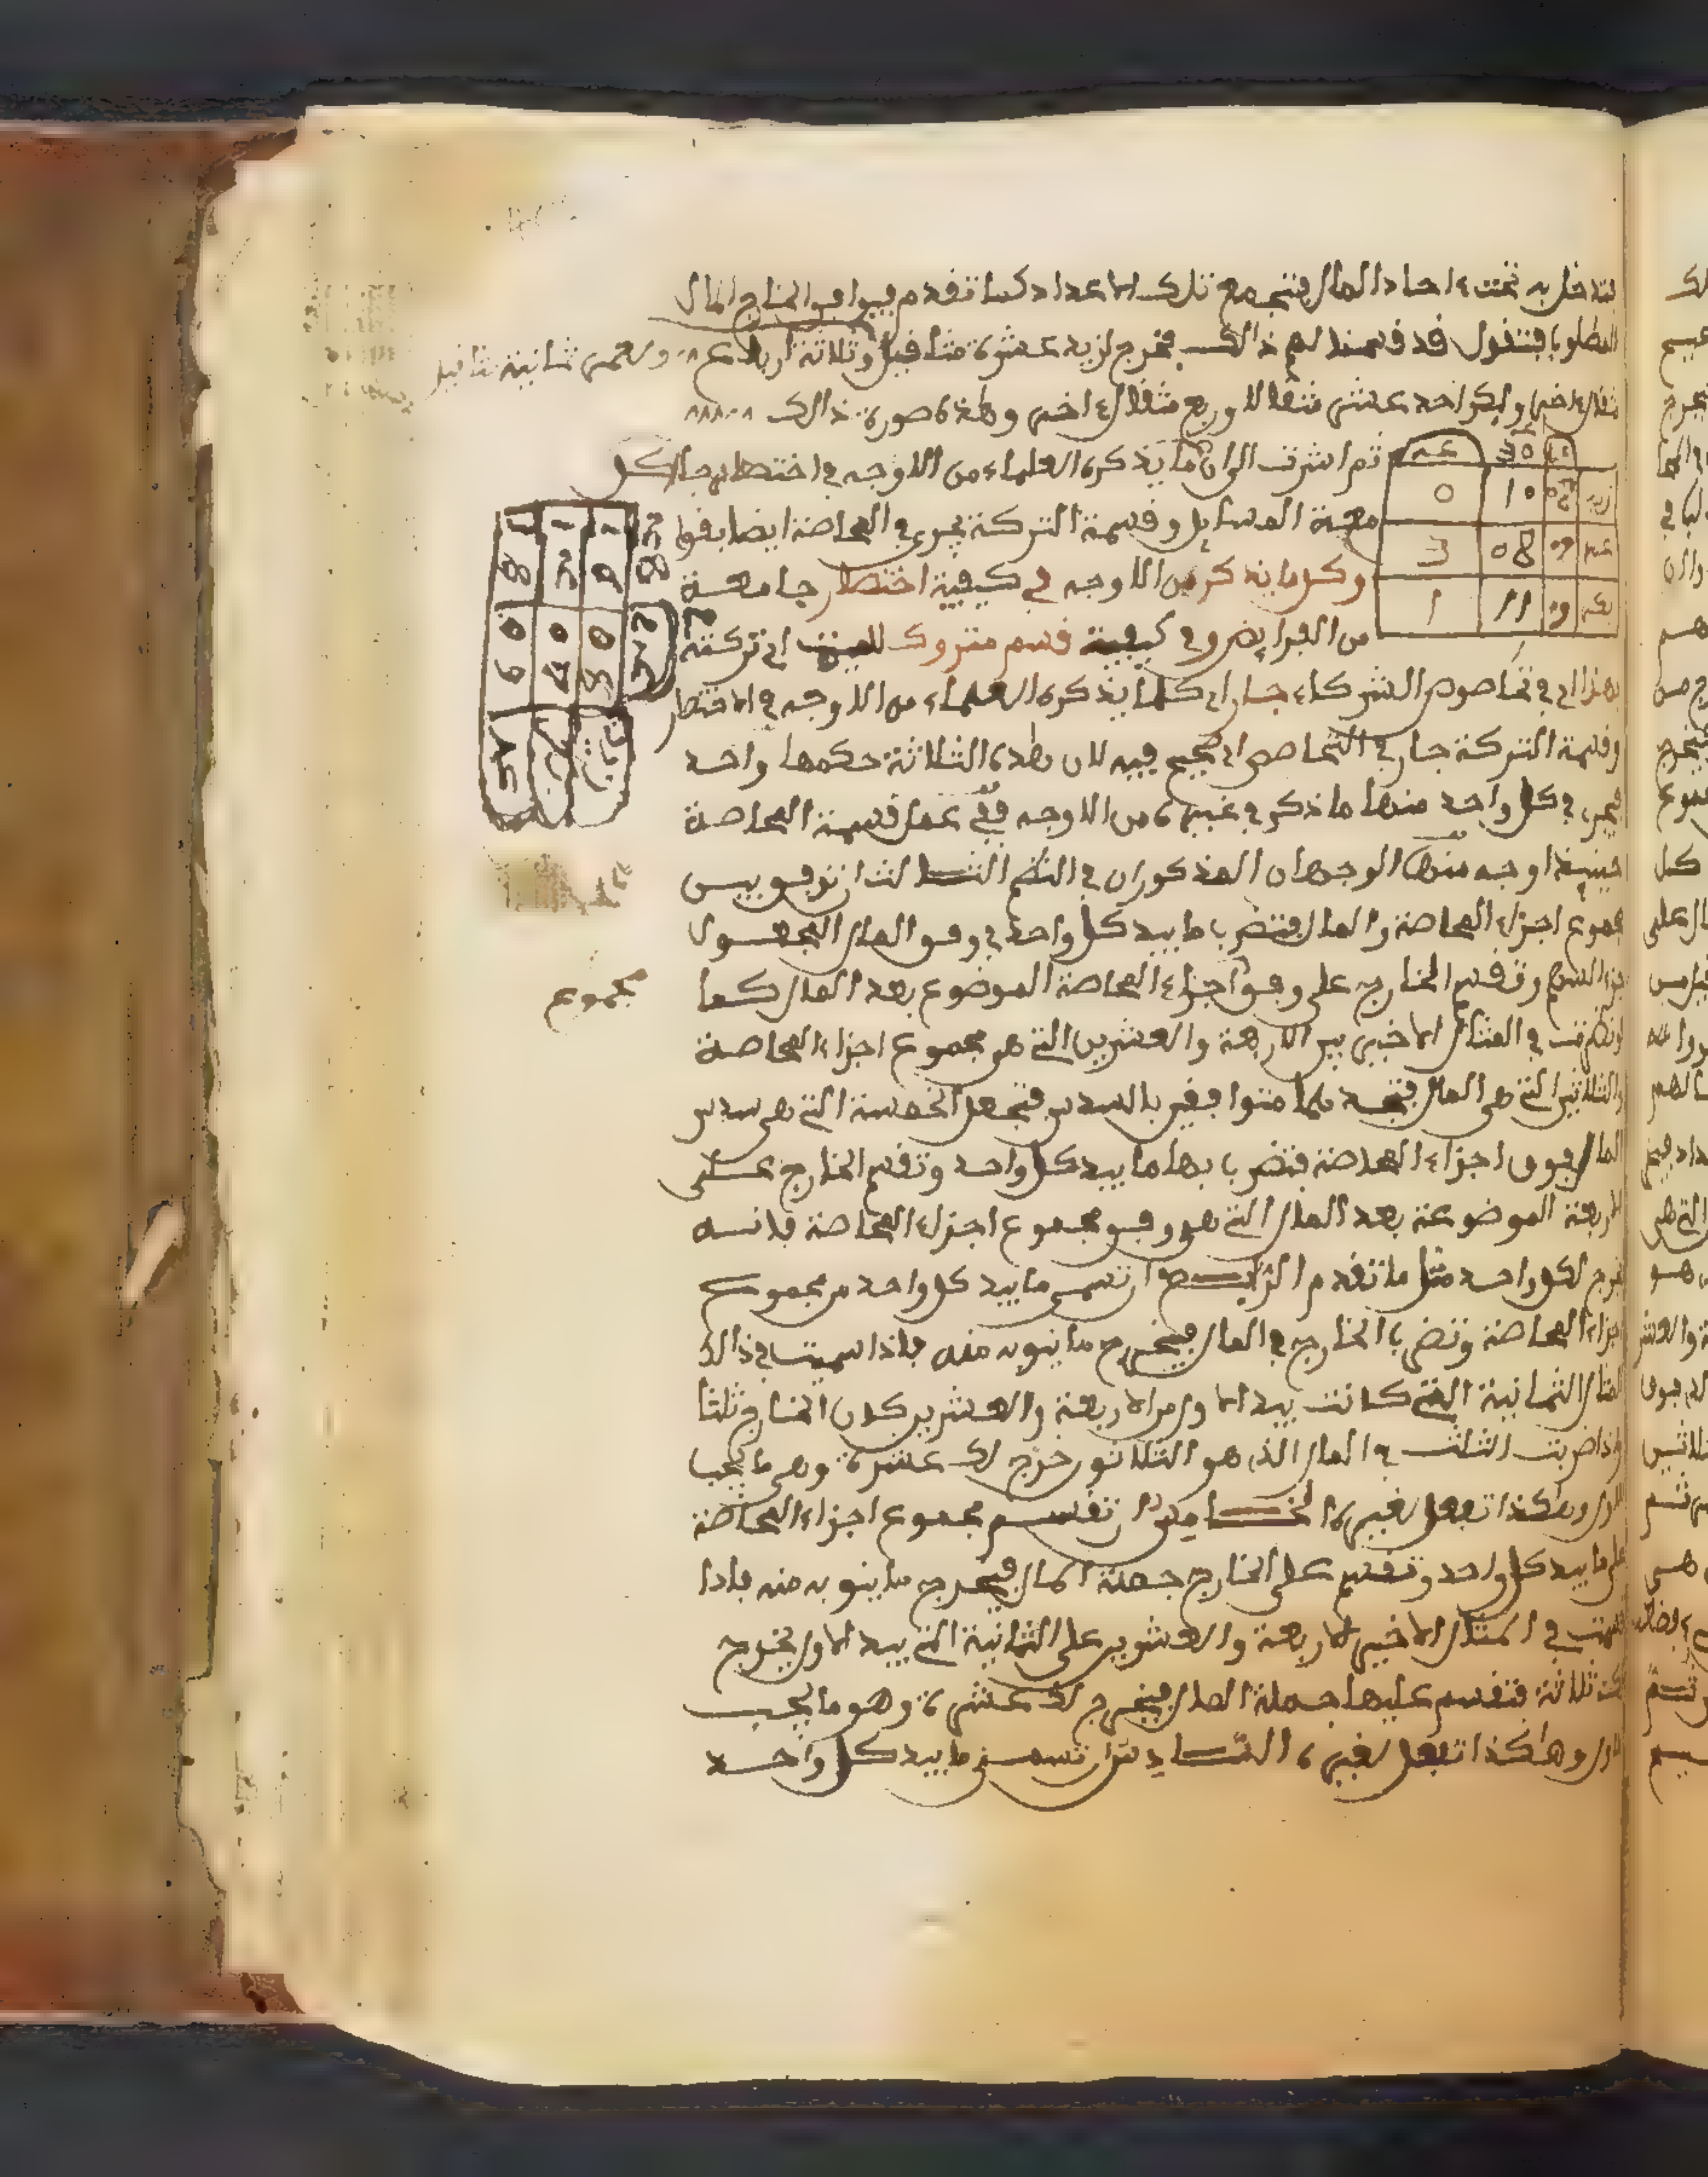 فتدخل به تحت ءاحاد المال فتجمع تلك الاعداد كما تقدم فيوافق الخارج المال
المطلوب فتقول قد قسمنا لهم ذالك فخرج لزيد عشرة مثاقيل وثلاثة ارباع ولعمر ثمانية مثاقيل
مثقال اخر ولبكر احد عشر مثقالا وربع مثقال اخر وهذه صورة ذالك
ثم اشرت الى ان ما يذكره العلماء من الاوجه في اختصار جا كل
معة المسايل وقسمة التركة يجري في المحاصة ايضا بقو
وكل ما يذكر من الاوجه في كيفية اختصار جامعة
من الفرايض وفي كيفية قسم متروك للميت اي تركته
بهذا اي في تحاصص الشركاء جار اي كلما يذكره العلماء من الاوجه في الاختصار
وقسمة التركة جار في التحاصص اي يجي فيه لان هذه الثلاثة حكمها واحد
فيجري في كل واحد منها ما ذكر في غيره من الاوجه ففي عمل قسمة المحاصة
حينيذ اوجه منها الوجهان المذكوران في النظم الثالث ان توفق بين
مجموع اجزاء المحاصة والمال فتضرب ما بيد كل واحد في وفق المال المجعول
جزء السهم وتقسم الخارج على وفق اجزاء المحاصة الموضوع بعد المال كما
لو نظرت في المثال الاخير بين الاربعة والعشرين التي هي مجموع اجزاء المحاصة
والثلاثين التي هي المال فتجدهما متوافقين بالسدس فتجعل الخمسة التي هي سدس
المال فوق اجزاء المحاصة فتضرب بها ما بيد كل واحد وتقسم الخارج على
الاربعة الموضوعة بعد المال التي هو وفق مجموع اجزاء المحاصة فانه
يخرج لكل واحد مثل ما تقدم الرابع ان تسمي ما بيد كل واحد من مجموع
اجزاء المحاصة وتضرب الخارج في المال فيخرج ما ينوبه منه فاذا سميت في ذالك
المثال الثمانية التي كانت بيد الاول من الاربعة والعشرين كان الخارج ثلثا
واذا ضربت الثلث في المال الذي هو الثلاثون خرج لك عشرة وهي ما يجب
للاول وهكذا تفعل لغيره الخامس ان تقسم مجموع اجزاء المحاصة
على ما بيد كل واحد وتقسم على الخارج جملة المال فيخرج ما ينوبه منه فاذا
قسمت في المثال الاخير الاربعة والعشرين على الثمانية التي بيد الاول يخرج
لك ثلاثة فتقسم عليها جملة المال فيخرج لك عشرة وهو ما يجب
للاول وهاكذا تفعل لغيره السادس ان تسمي ما بيد كل واحد
30
10 0
08 3
11 1
مجموع